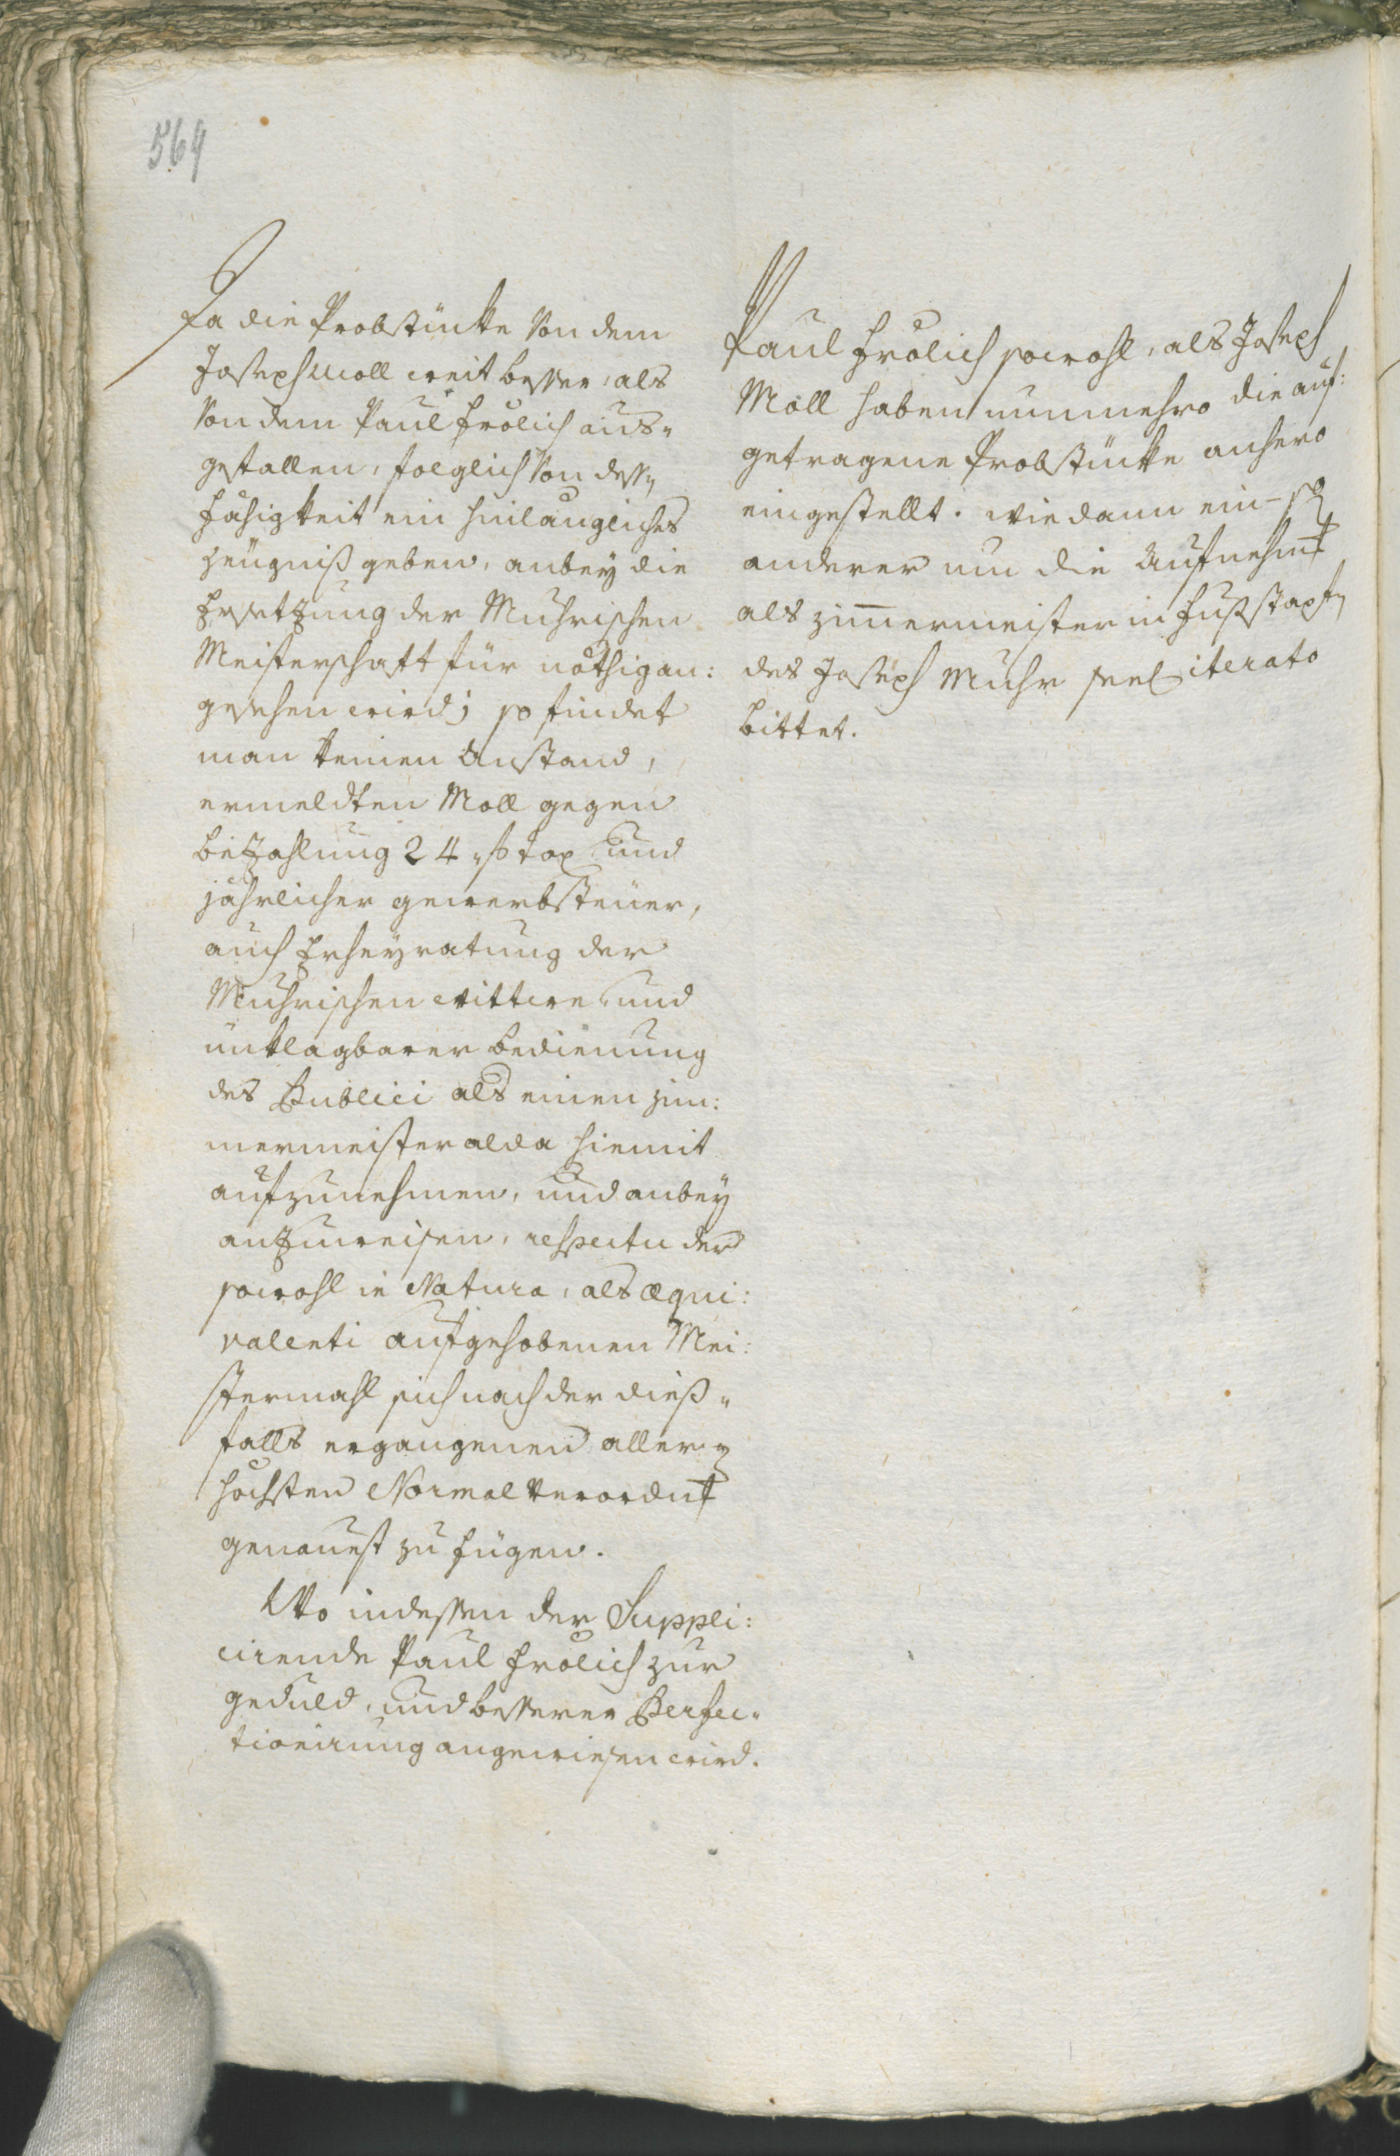 569
Da die Probstücke von dem
Joseph Moll weit besser, als
von dem Paul Frölich aus„
gefallen, folglich von dessen
Fähigkeit ein hinlängliches
Zeugniß geben, anbey die
Ersetzung der Muhrischen
Meisterschaft für nöthig an:
gesehen wird; so findet
man keinen Anstand,
ermeldten Moll gegen
Bezahlung 24 f tax und
jährlicher gewerbsteuer,
auch Erheyratung der
Muhrischen Wittwe, und
unklagbarer bedienung
des Publici als einen Zim:
mermeister alda hiemit
aufzunehmen, und anbey
anzuweisen, respectu der
sowohl in Natura, als æqui:
valenti aufgehobenen Mei:
stermahl sich nach der dieß„
falls ergangenen aller„
höchsten Normal Verordng
genauest zu fügen.
Wo indessen der Suppli:
cirende Paul Frölich zur
geduld, und besserer Perfec„
tionirung angewiesen wird.
Paul Frölich sowohl, als Joseph
Moll haben nunmehro die auf:
getragene Probstücke anhero
eingestellt. wie dann ein- so
anderer um die Aufnehmg
als Zimmermeister in Fußstapfen
des Joseph Muhr seel iterato
bittet.